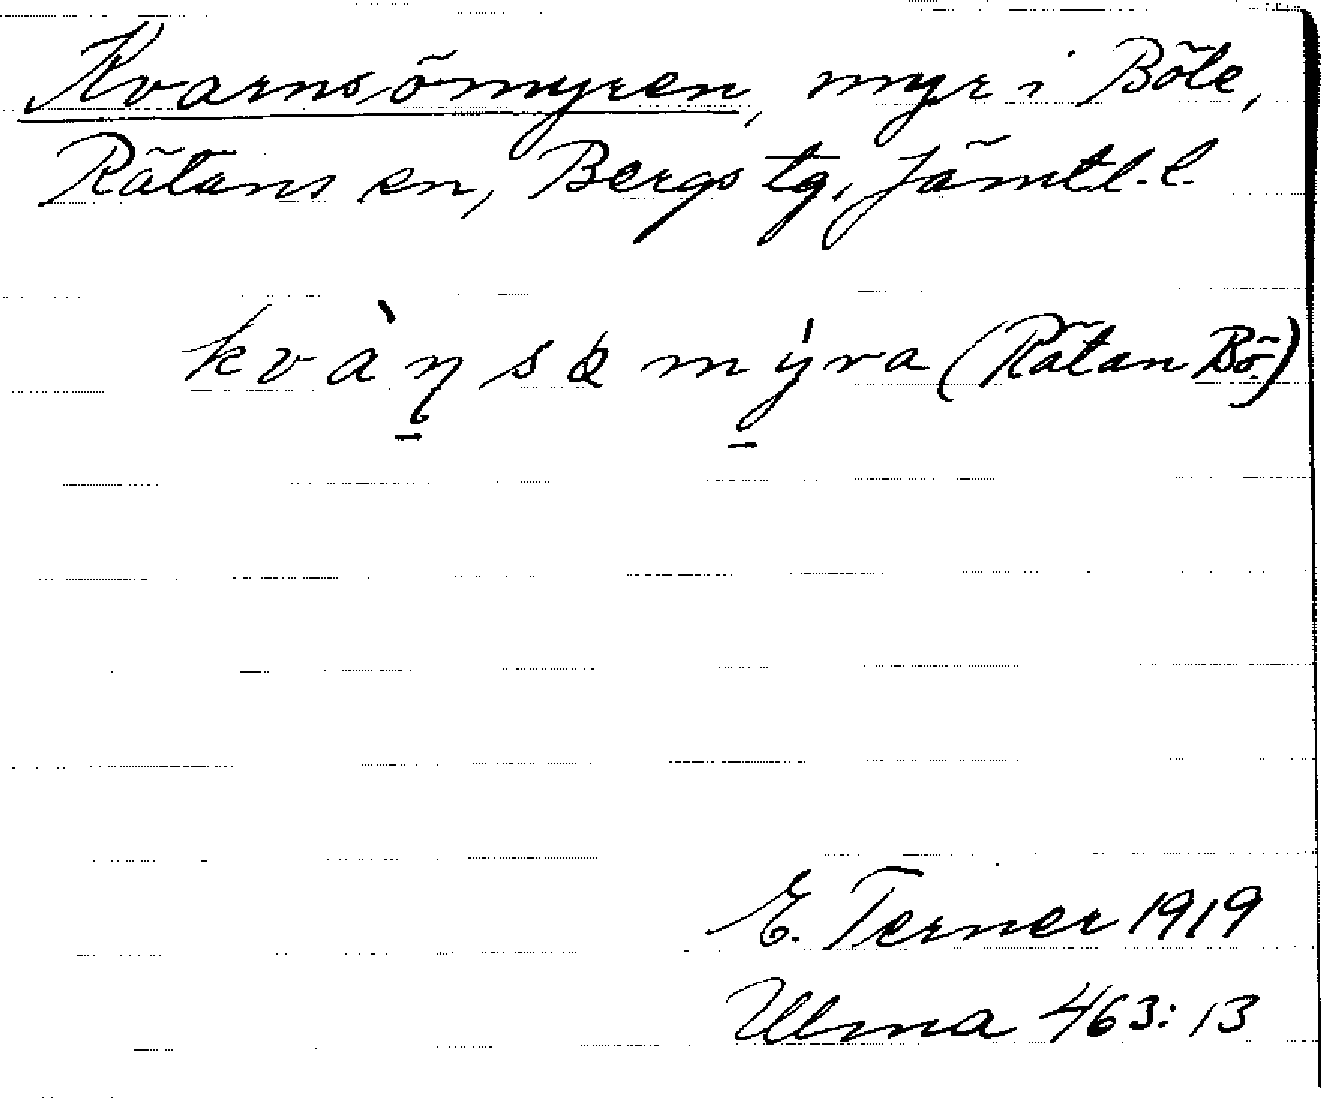 Kvarnsömyren, myr i Böle,
Rätans sn, Bergs tg, Jämtl. l.
kvàɳsømýra (Rätan Bö.)
E. Terner 1919
Ulma 463:13